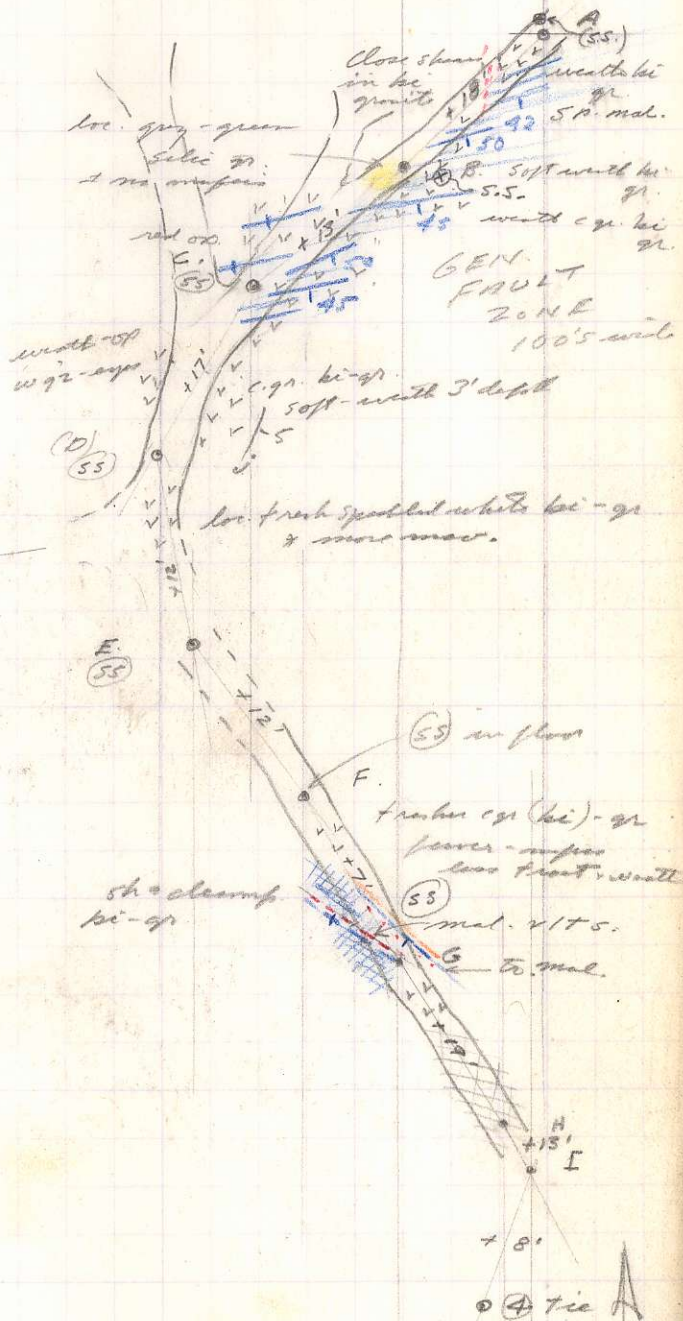 A
(S.S.)
Close shears
in bi
granite
+ 18'
weath bi
gr.
sp. mal.
42
50
loc. gray-green
silic gr.
+ no
B. Soft weath bi
gr.
S.S.
weath cgr. bi
gr.
45
red
C.
SS
x 13'
50
45
GEN.
FAULT
ZONE
100's wide
weath
w qz-eyes
+17'
c.gr. bi-gr.
soft-weath 3' depth
5
(D)
SS
loc. fresh speckled white bi-gr
more
+12'
E.
SS
+12'
SS in floor
F.
fresher cgr (bi)-gr
fewer
less weath
+7'
sh
bi-gr
SS
mal. vlts.
G
to mal.
+19'
H
+13'
I
+ 8'
4 tie